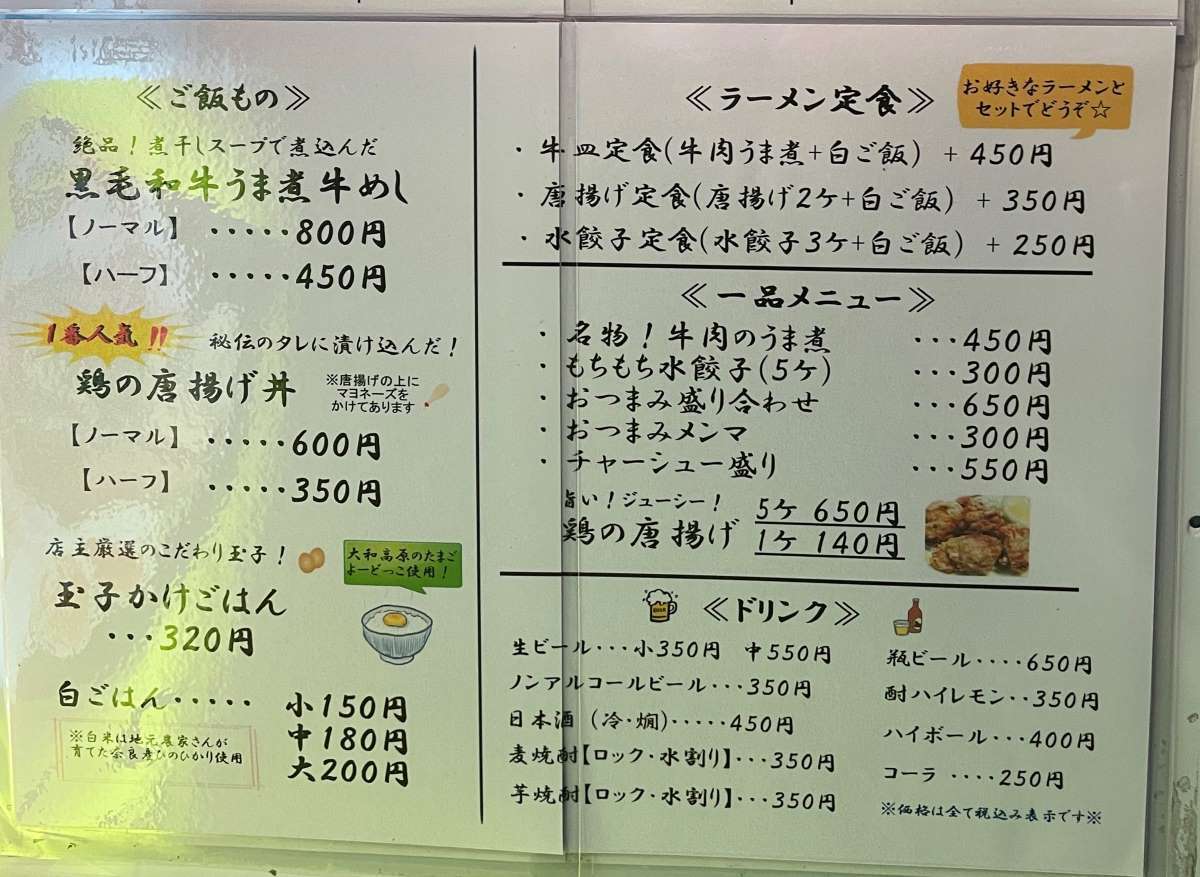 ≪ご飯もの≫
絶品！煮干しスープで煮込んだ
黒毛和牛うま煮牛めし
【ノーマル】・・・・・800円
【ハーフ】・・・・・450円
1番人気!!
秘伝のタレに漬け込んだ！
鶏の唐揚げ丼
※唐揚げの上に
マヨネーズを
かけてあります
【ノーマル】・・・・・600円
【ハーフ】・・・・・350円
店主厳選のこだわり玉子！
大和高原のたまご
よーどっこ使用！
玉子かけごはん
・・・320円
白ごはん・・・・・小150円
中180円
大200円
※白米は地元農家さんが
育てた奈良産ひのひかり使用
≪ラーメン定食≫
お好きなラーメンと
セットでどうぞ☆
・牛皿定食(牛肉うま煮+白ご飯) +450円
・唐揚げ定食(唐揚げ2ケ+白ご飯) +350円
・水餃子定食(水餃子3ケ+白ご飯) +250円
≪一品メニュー≫
・名物！牛肉のうま煮 ・・・450円
・もちもち水餃子(5ケ) ・・・300円
・おつまみ盛り合わせ ・・・650円
・おつまみメンマ ・・・300円
・チャーシュー盛り ・・・550円
旨い！ジューシー！
鶏の唐揚げ 5ケ 650円
1ケ 140円
≪ドリンク≫
生ビール・・・小350円 中550円
ノンアルコールビール・・・350円
日本酒（冷・燗）・・・・・450円
麦焼酎【ロック・水割り】・・・350円
芋焼酎【ロック・水割り】・・・350円
瓶ビール・・・・650円
酎ハイレモン・・350円
ハイボール・・・400円
コーラ ・・・・250円
※価格は全て税込み表示です※